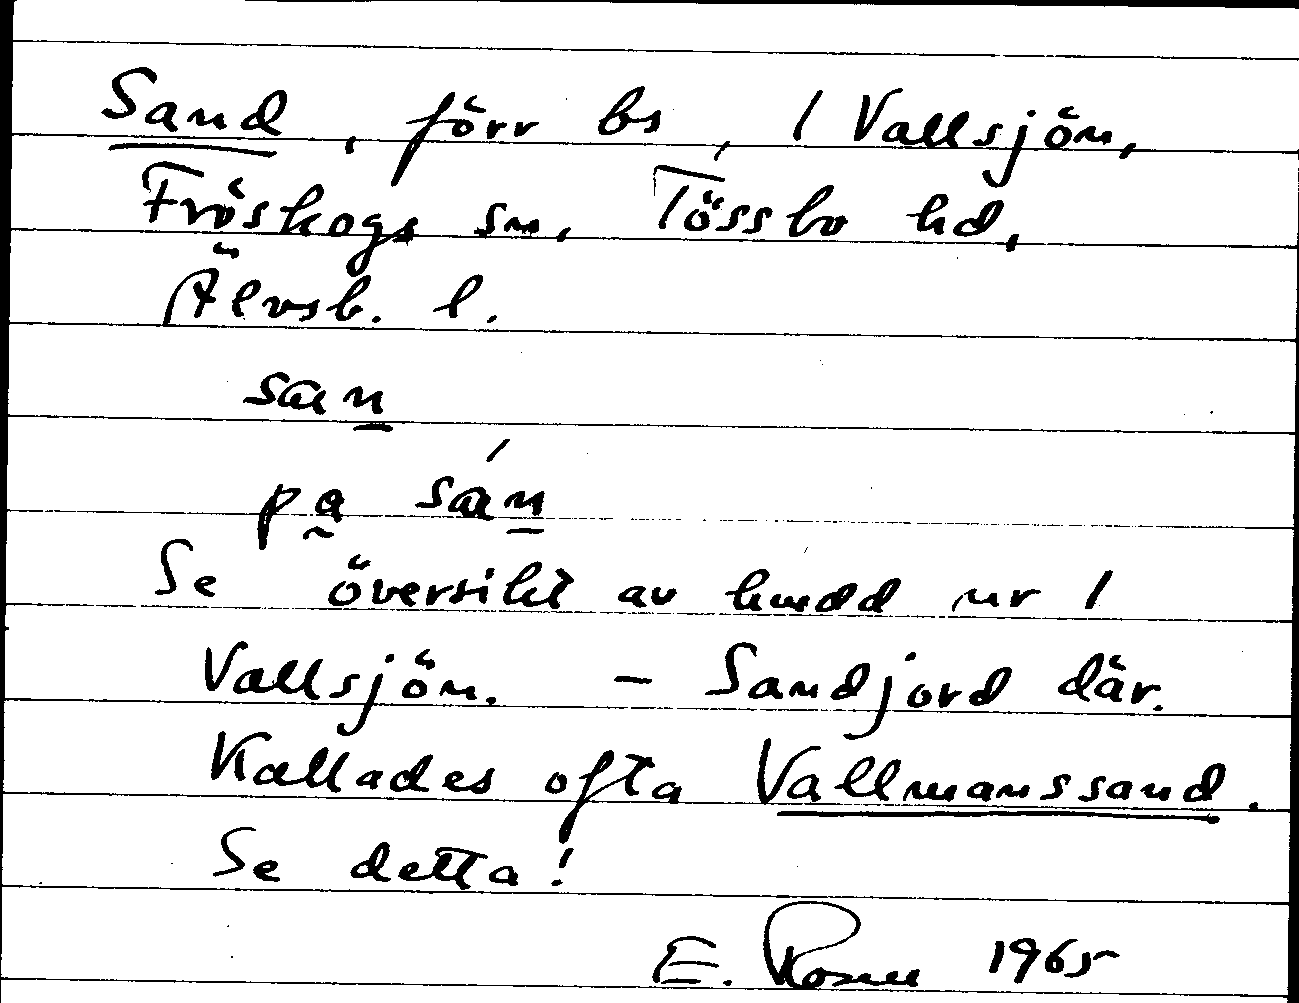 Sand, förr bs, 1 Vallsjön,
Fröskogs sn, Tössbo hd,
Älvsb. l.
san
pa sán
Se översikt av hmdd nr 1
Vallsjön. – Sandjord där.
Kallades ofta Vallmanssand.
Se detta!
E. Rosell 1965